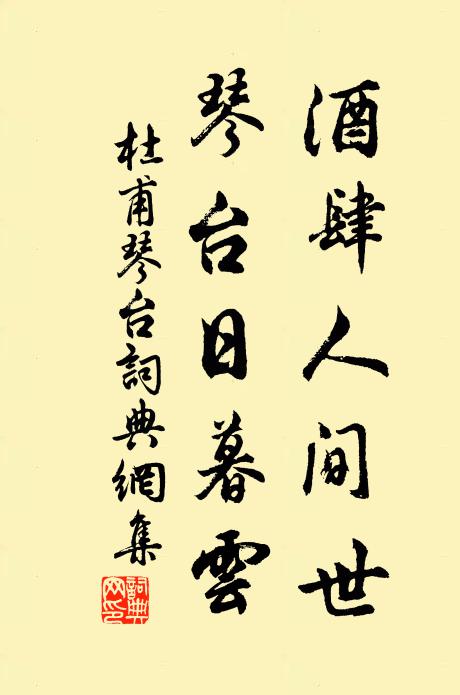 酒肆人间世
琴台日暮雲
杜甫琴台詞典網集
詞典网印